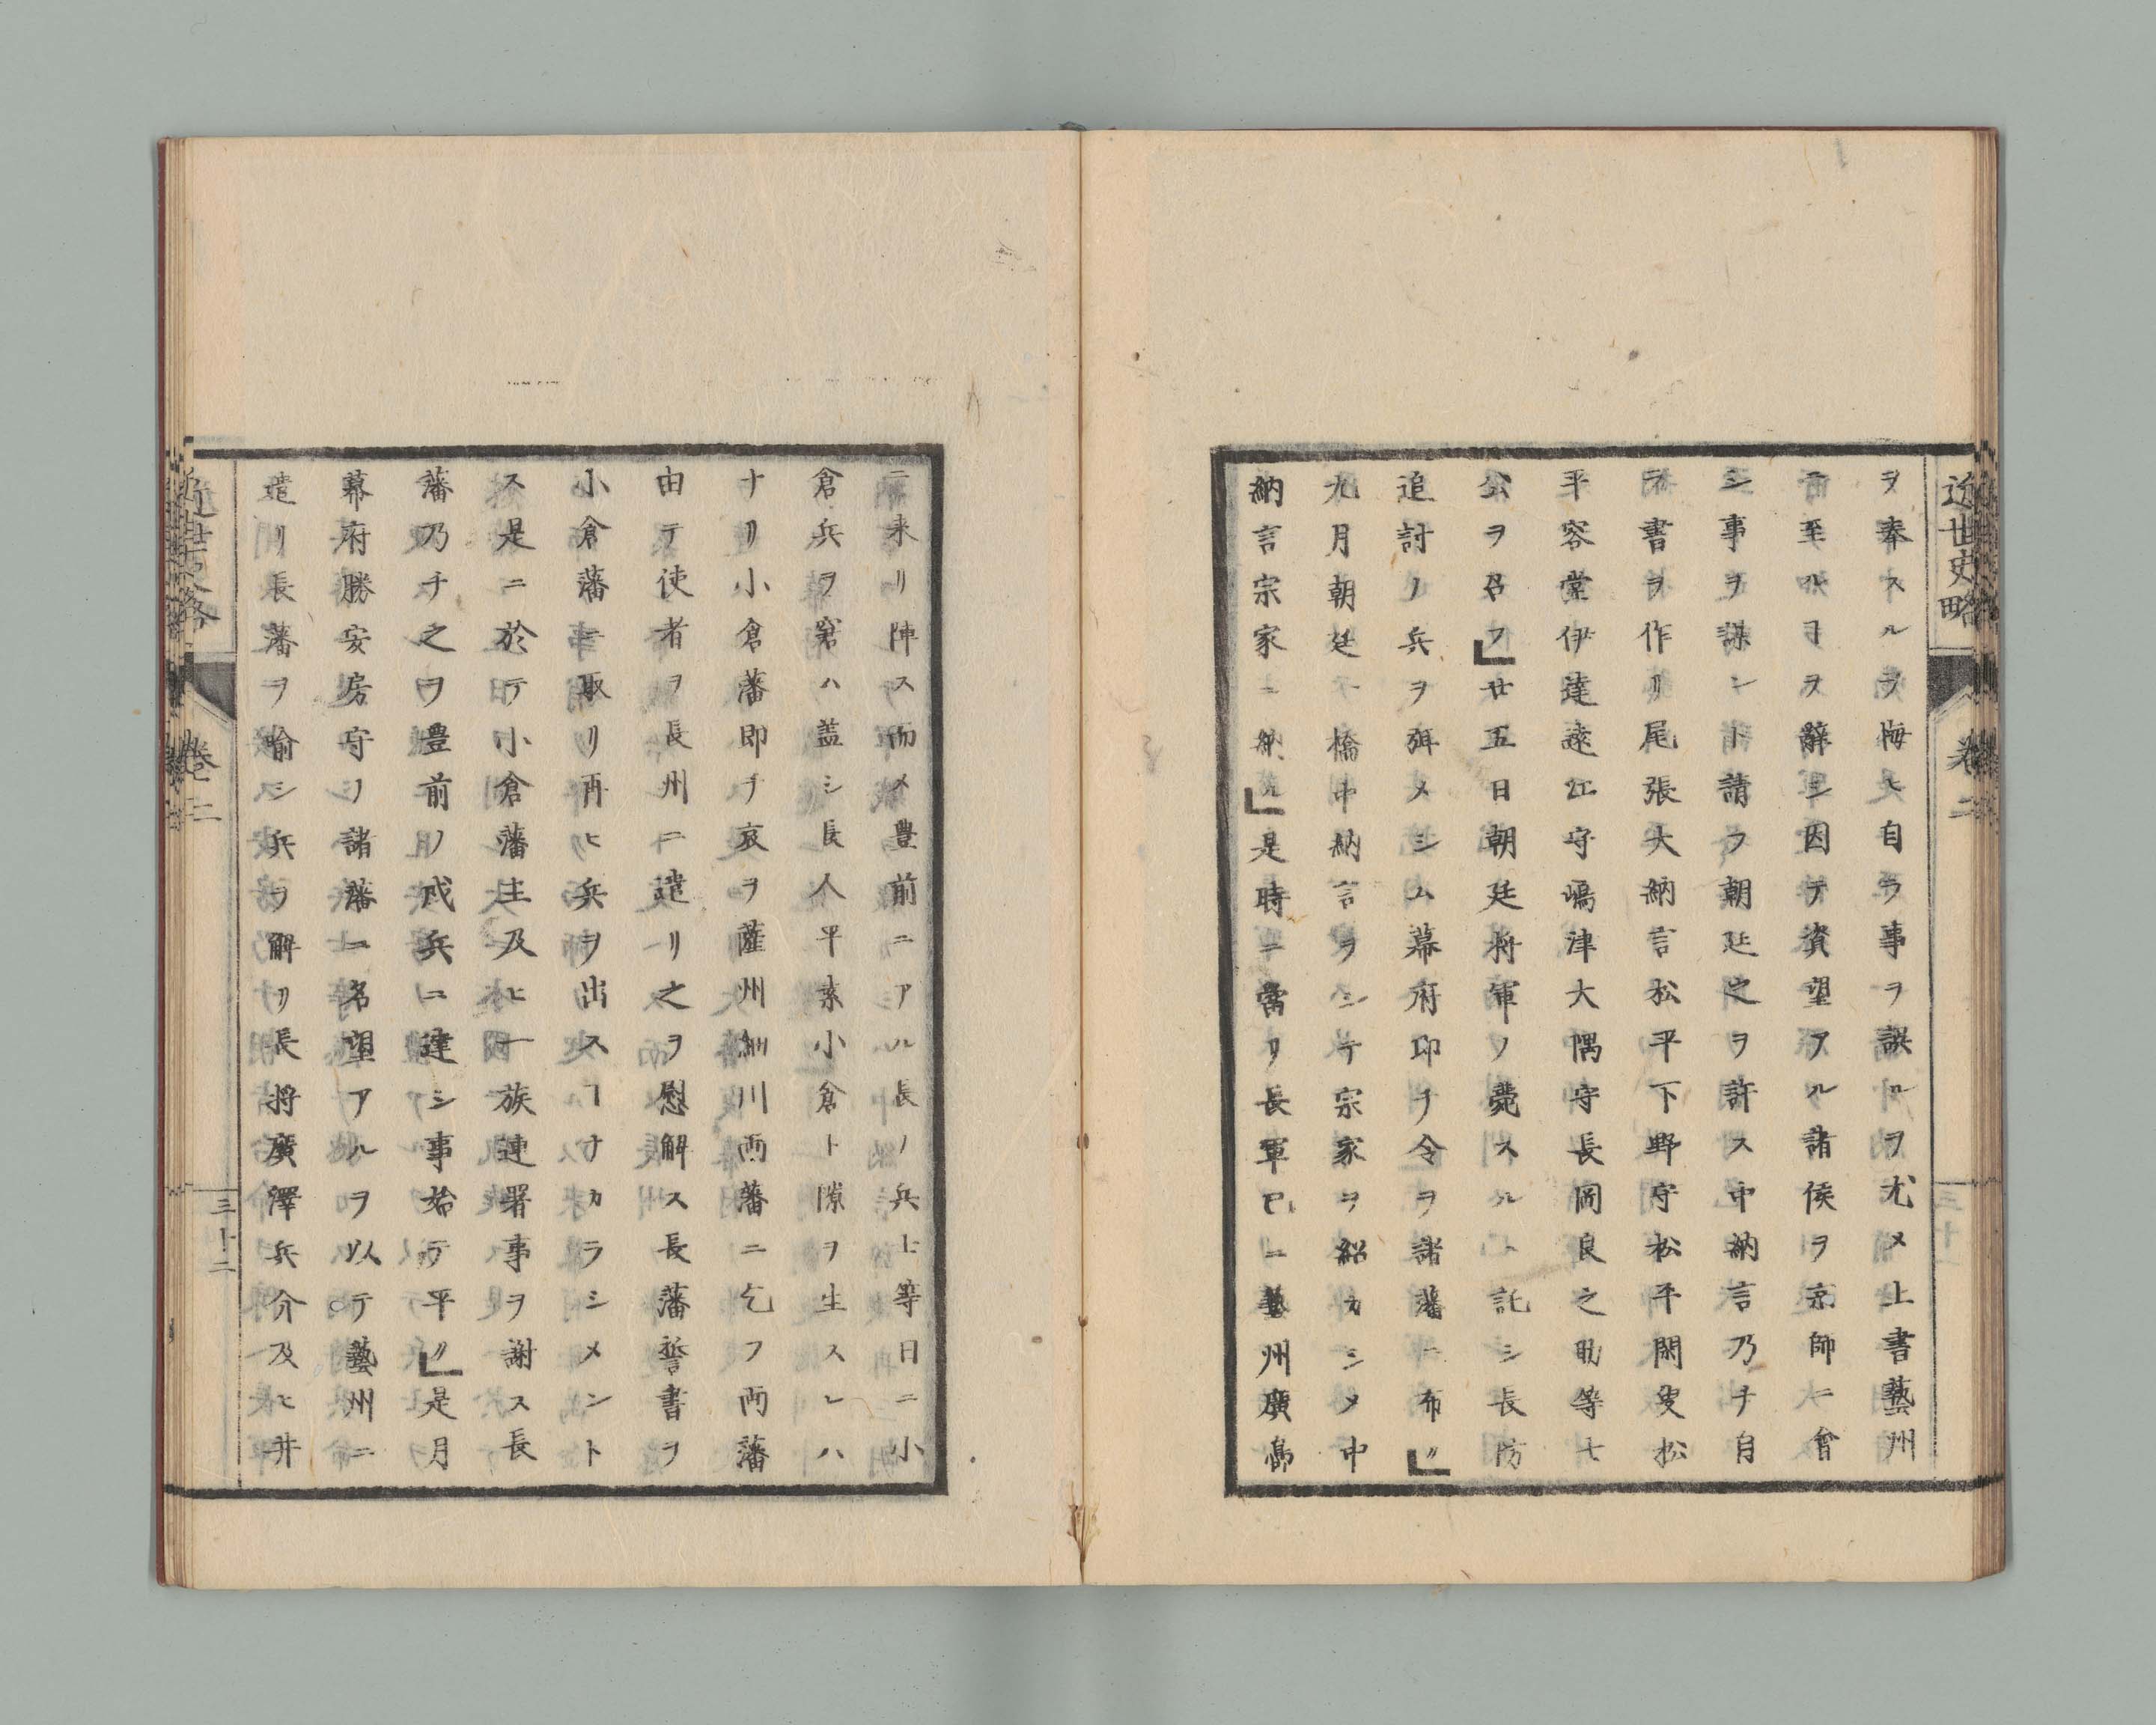 近世史略
卷二
ヲ奉スルヲ悔ヒ自ラ事ヲ誤ルヲ尤メ上書藝州
ニ至ルヿヲ辭シ因テ資望アル諸侯ヲ京師ニ會
シ事ヲ謀ント請フ朝廷之ヲ許ス中納言乃チ自
ラ書ヲ作リ尾張大納言松平下野守松平閑叟松
平容堂伊達遠江守嶋津大隅守長岡良之助等七
公ヲ召フ廿五日朝廷將軍ノ薨スルニ託シ長防
追討ノ兵ヲ弭メシム幕府即チ令ヲ諸藩ニ布ク
九月朝廷一橋中納言ヲシテ宗家ヲ紹カシメ中
納言宗家ニ納ル是時ニ當リ長軍已ニ藝州廣島
ニ来リ陣ス而メ豊前ニアル長ノ兵士等日ニ小
倉兵ヲ窘ム盖シ長人平素小倉ト隙ヲ生スレハ
ナリ小倉藩即チ哀ヲ薩州細川両藩ニ乞フ両藩
由テ使者ヲ長州ニ遣リ之ヲ慰解ス長藩誓書ヲ
小倉藩ニ取リ再ヒ兵ヲ出スヿナカラシメント
ス是ニ於テ小倉藩主及ヒ一族連署事ヲ謝ス長
藩乃チ之ヲ豊前ノ戍兵ニ達シ事始テ平ク是月
幕府勝安房守ノ諸藩ニ名望アルヲ以テ藝州ニ
遣リ長藩ヲ喻シ兵ヲ解ク長將廣澤兵介及ヒ井
近世史略
卷之二
三十二